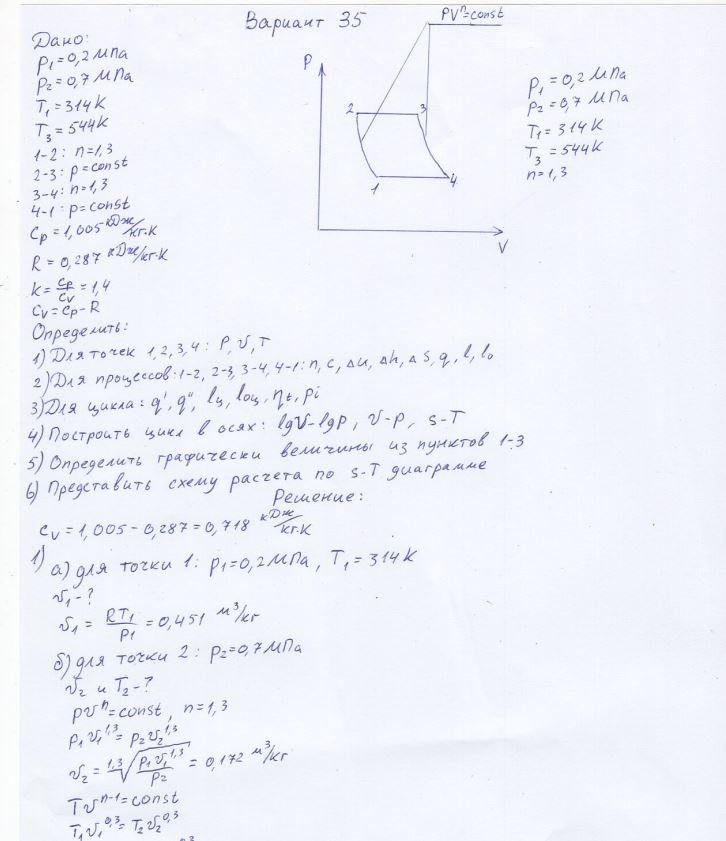 Вариант 35
PVⁿ=const
Дано:
P₁=0,2 МПа
P₂=0,7 МПа
T₁=314К
T₃=544К
1-2: n=1,3
2-3: p=const
3-4: n=1,3
4-1: p=const
Cp=1,005 кДж/кг·К
R=0,287 кДж/кг·К
k=Cp/Cv=1,4
Cv=Cp-R
P
2
3
1
4
V
P₁=0,2 МПа
P₂=0,7 МПа
T₁=314К
T₃=544К
n=1,3
Определить:
1) Для точек 1,2,3,4: P, v, T
2) Для процессов: 1-2, 2-3, 3-4, 4-1: n, c, Δu, Δh, ΔS, q, l, l₀
3) Для цикла: q', q", lц, l₀ц, ηt, Pi
4) Построить цикл в осях: lgV-lgP, v-P, s-T
5) Определить графически величины из пунктов 1-3
6) Представить схему расчета по s-T диаграмме
Решение:
Cv=1,005-0,287=0,718 кДж/кг·К
1) а) для точки 1: p₁=0,2МПа, T₁=314К
v₁-?
v₁=RT₁/P₁=0,451 м³/кг
б) для точки 2: p₂=0,7МПа
v₂ и T₂-?
pvⁿ=const, n=1,3
P₁v₁^1,3=P₂v₂^1,3
v₂=^1,3√(P₁v₁^1,3/P₂)=0,172 м³/кг
Tvⁿ⁻¹=const
T₁v₁^0,3=T₂v₂^0,3